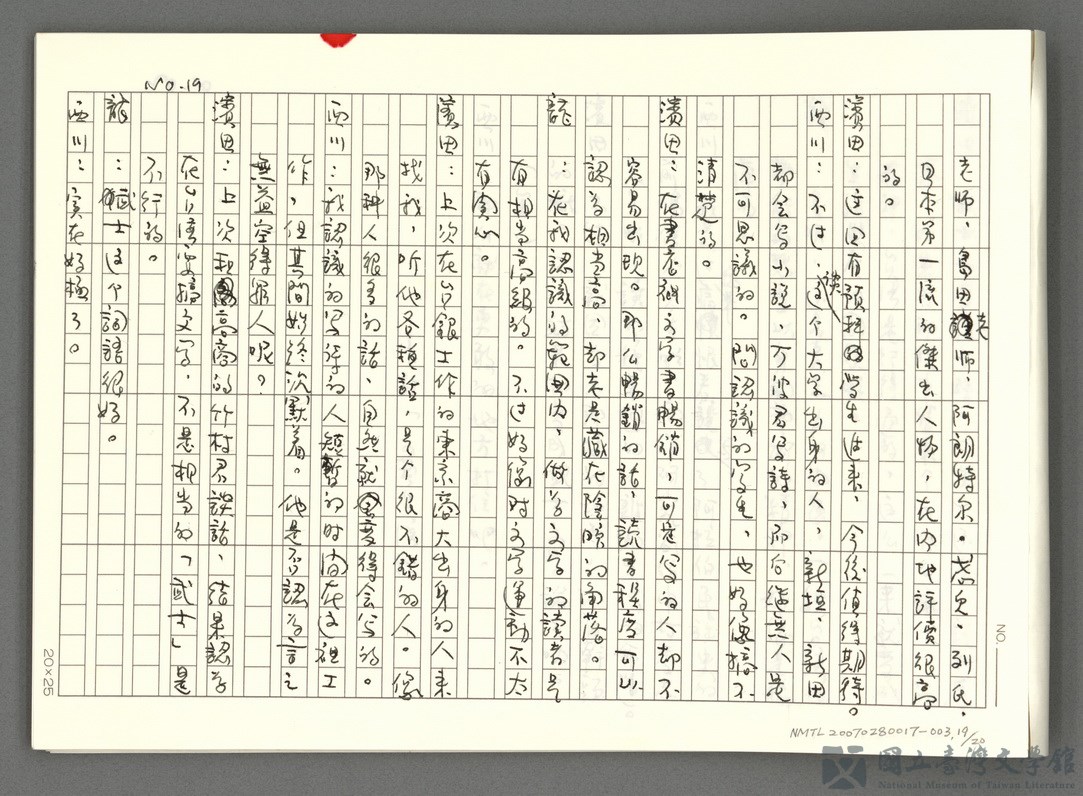 No.19
老师、島田謹老师、阿朗特尔。志兔、列氏、
日本第一流的傑出人物,在内地評價很高
的。
濱田:这回有預科的学生进来,今後值得期待。
西川:不过,說这个大学出身的人,新垣、新田
都会写小說,万波君写詩,而后継無人是
不可思議的。問認識的学生,也好像搞不
清楚的。
濱田:在書店裡文学書暢銷,可是写的人却不
容易出現。那么暢銷的話,読書程度可以
認為相当高,却老是藏在陰暗的角落。
龍 :在我認識的範囲内,做為文学的讀者是
有相当高級的。不过好像对文学運動不太
有関心。
濱田:上次在台銀上作的東京商大出身的人来
找我,听他各種話,是个很不錯的人。像
那种人很多的話,自然就会变得会写的。
西川:我認識的写詩的人短暫的时间在这裡工
作,但其間始終沉默着。他是否認為言之
無益空得罪人呢?
濱田:上次和高商的竹村君談話,結果認為
在台湾要搞文学,不是相当的「武士」是
不行的。
龍 :武士这个詞語很好。
西川:实在好極了。
20×25
NO.
NMTL 20070280017-003,19/20
國立臺灣文學館
National Museum of Taiwan Literature